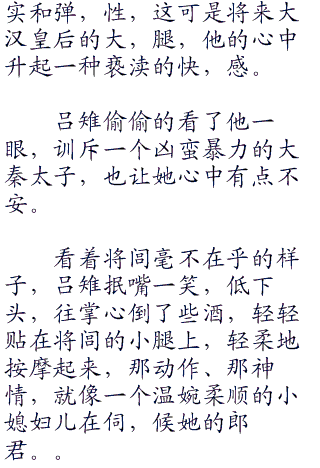 实和弹，性，这可是将来大
汉皇后的大，腿，他的心中
升起一种亵渎的快，感。
吕雉偷偷的看了他一
眼，训斥一个凶蛮暴力的大
秦太子，也让她心中有点不
安。
看着将闾毫不在乎的样
子，吕雉抿嘴一笑，低下
头，往掌心倒了些酒，轻轻
贴在将闾的小腿上，轻柔地
按摩起来，那动作、那神
情，就像一个温婉柔顺的小
媳妇儿在伺，候她的郎
君。。